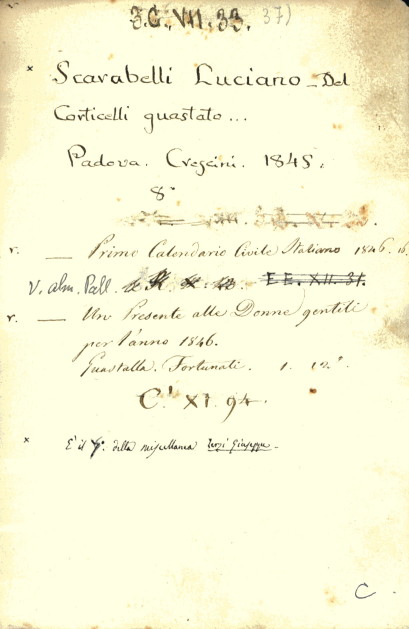 J.G. VII. 33. 37)
x Scarabelli Luciano – Del
Corticelli guastato...
Padova. Crescini. 1845.
8°
r. — Primo Calendario Civile Italiano 1846. 16.
V. alm. Pall. E.E. XII. 31.
r. — Un Presente alle Donne gentili
per l'anno 1846.
Guastalla. Fortunati. 1. 12.°
C.¹ XI. 94.
x È il della miscellanea Giuseppe –
C